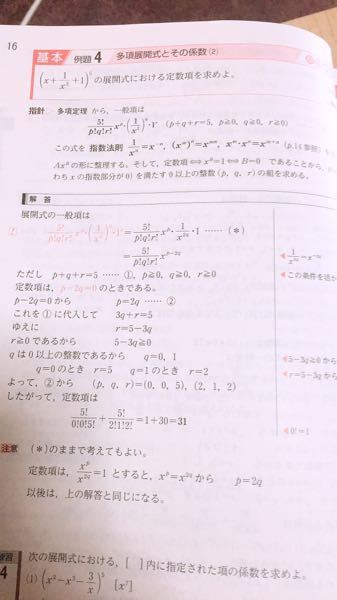 16
基本 例題 4 多項展開式とその係数 (2)
(x + 1/x² + 1)⁵ の展開式における定数項を求めよ。
指針 多項定理 から，一般項は
5!/(p!q!r!) xᵖ・(1/x²)^q・1ʳ (p+q+r=5, p≧0, q≧0, r≧0)
この式を 指数法則 1/xⁿ=x⁻ⁿ, (xᵐ)ⁿ=xᵐⁿ, xᵐ・xⁿ=xᵐ⁺ⁿ (p.14 参照)
Axᴮ の形に整理する。そして，定数項⟺x⁰=1⟺B=0 であることから，
わち x の指数部分が 0) を満たす 0 以上の整数 (p, q, r) の組を求める。
解答
展開式の一般項は
5!/(p!q!r!) xᵖ・(1/x²)^q・1ʳ = 5!/(p!q!r!) xᵖ・1/x^{2q}・1 …… (*)
= 5!/(p!q!r!) x^{p-2q}
◀ 1/x^{2q}=x^{-2q}
ただし p+q+r=5 …… ①, p≧0, q≧0, r≧0
◀この条件を活か
定数項は，p-2q=0 のときである。
p-2q=0 から p=2q …… ②
これを ① に代入して 3q+r=5
ゆえに r=5-3q
r≧0 であるから 5-3q≧0
◀5-3q≧0 から
q は 0 以上の整数であるから q=0, 1
q=0 のとき r=5 q=1 のとき r=2
◀r=5-3q から
よって，② から (p, q, r)=(0, 0, 5), (2, 1, 2)
したがって，定数項は
5!/(0!0!5!) + 5!/(2!1!2!) = 1+30=31
◀0!=1
注意 (*) のままで考えてもよい。
定数項は，xᵖ/x^{2q}=1 とすると，xᵖ=x^{2q} から p=2q
以後は，上の解答と同じになる。
練習 次の展開式における，[ ] 内に指定された項の係数を求めよ。
4 (1) (x²-x³-3/x)⁵ [x⁷]